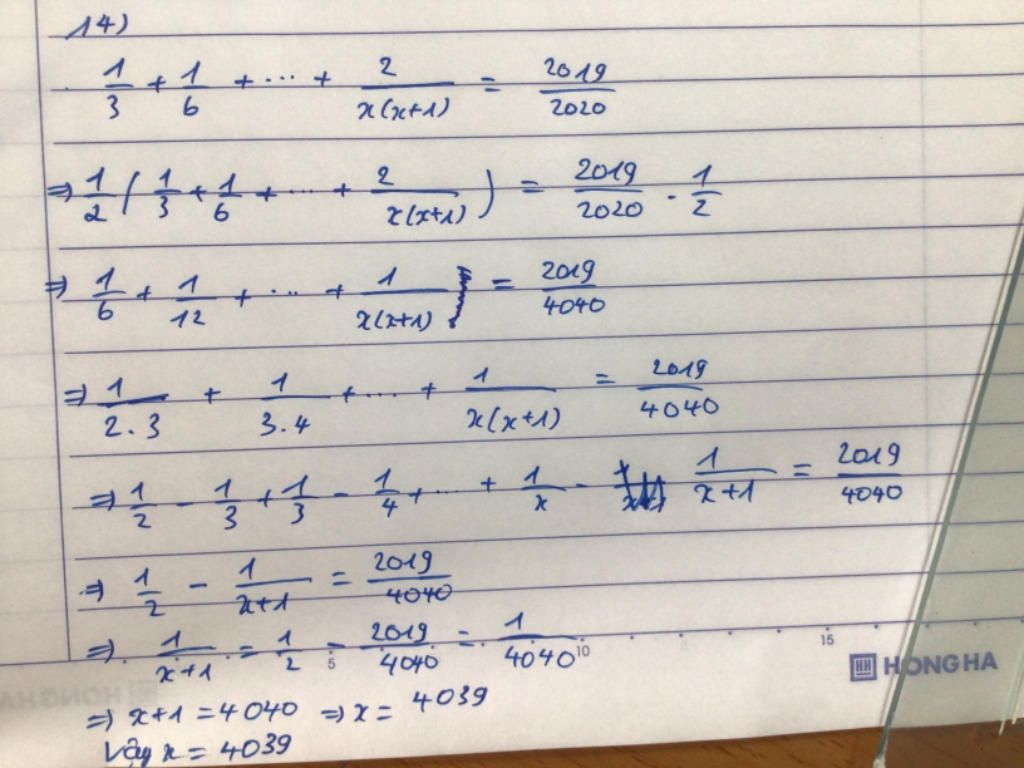 14)
1/3 + 1/6 + ... + 2/x(x+1) = 2019/2020
=> 1/2 ( 1/3 + 1/6 + ... + 2/x(x+1) ) = 2019/2020 . 1/2
=> 1/6 + 1/12 + ... + 1/x(x+1) = 2019/4040
=> 1/2.3 + 1/3.4 + ... + 1/x(x+1) = 2019/4040
=> 1/2 - 1/3 + 1/3 - 1/4 + ... + 1/x - 1/x+1 = 2019/4040
=> 1/2 - 1/x+1 = 2019/4040
=> 1/x+1 = 1/2 - 2019/4040 = 1/4040
5 10 15
HONG HA
=> x+1 = 4040 => x = 4039
Vậy x = 4039